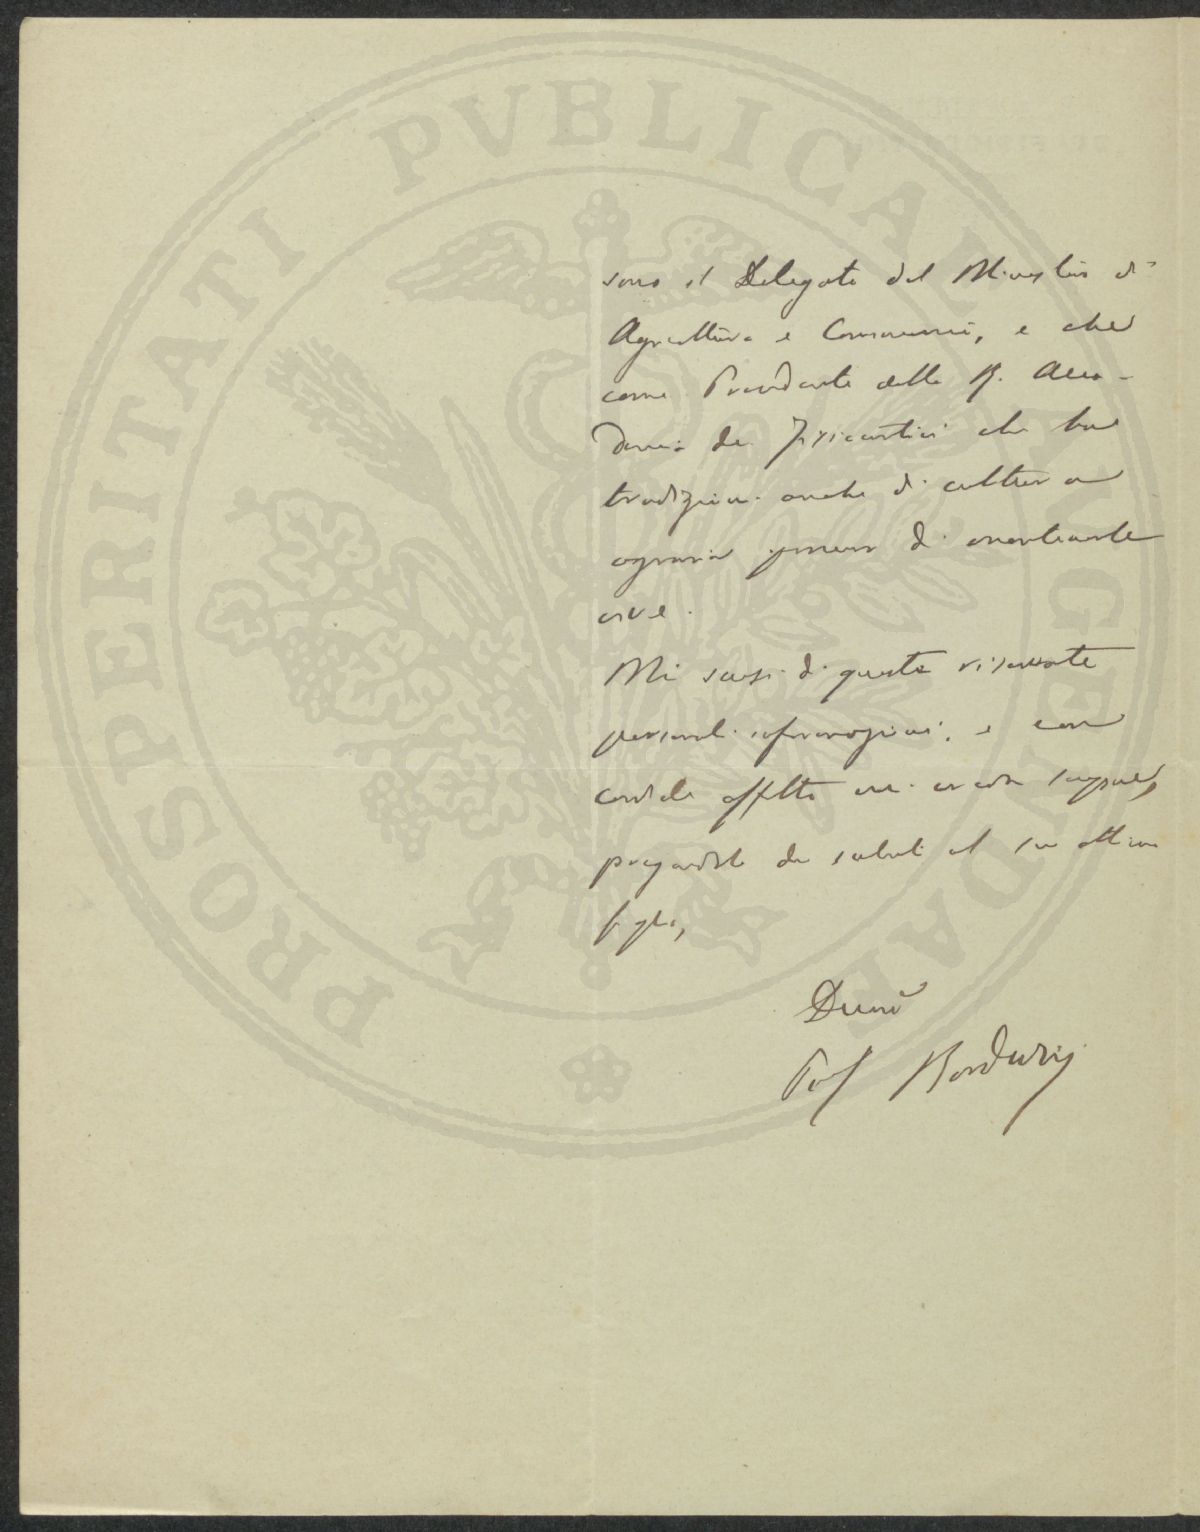 PROSPERITATI PVBLICAE AVGENDAE
sono il Delegato del Ministero di
Agricoltura e Commercio, e che
come Presidente della R. Acca-
demia dei Fisiocritici che ha
tradizioni anche di cultura
agraria di
Mi scusi di queste
personali informazioni, e con
cordiale affetto mi creda sempre,
pregandola di saluti al suo ottimo
figlio,
Devmo
Prof